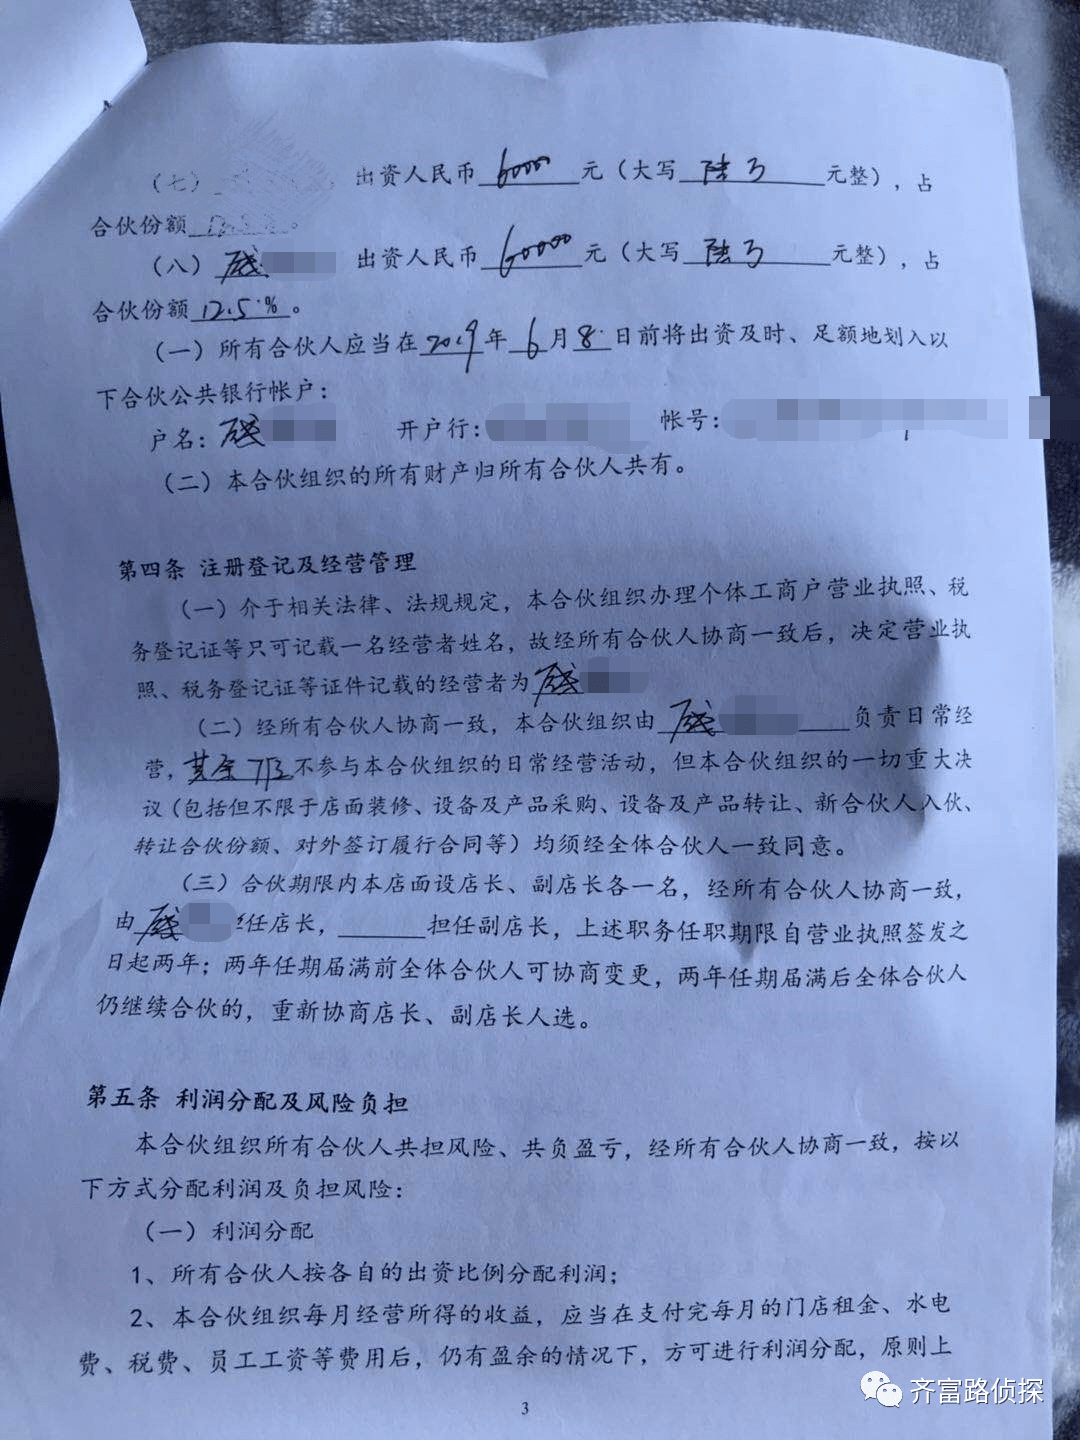 （七） 出资人民币 6000 元（大写 陆万 元整），占
合伙份额 。
（八） 出资人民币 60000 元（大写 陆万 元整），占
合伙份额 12.5% 。
（一）所有合伙人应当在 2019 年 6 月 8 日前将出资及时、足额地划入以
下合伙公共银行帐户：
户名： 开户行： 帐号：
（二）本合伙组织的所有财产归所有合伙人共有。
第四条 注册登记及经营管理
（一）介于相关法律、法规规定，本合伙组织办理个体工商户营业执照、税
务登记证等只可记载一名经营者姓名，故经所有合伙人协商一致后，决定营业执
照、税务登记证等证件记载的经营者为
（二）经所有合伙人协商一致，本合伙组织由 负责日常经
营，其余 不参与本合伙组织的日常经营活动，但本合伙组织的一切重大决
议（包括但不限于店面装修、设备及产品采购、设备及产品转让、新合伙人入伙、
转让合伙份额、对外签订履行合同等）均须经全体合伙人一致同意。
（三）合伙期限内本店面设店长、副店长各一名，经所有合伙人协商一致，
由 任店长，______担任副店长，上述职务任职期限自营业执照签发之
日起两年；两年任期届满前全体合伙人可协商变更，两年任期届满后全体合伙人
仍继续合伙的，重新协商店长、副店长人选。
第五条 利润分配及风险负担
本合伙组织所有合伙人共担风险、共负盈亏，经所有合伙人协商一致，按以
下方式分配利润及负担风险：
（一）利润分配
1、所有合伙人按各自的出资比例分配利润；
2、本合伙组织每月经营所得的收益，应当在支付完每月的门店租金、水电
费、税费、员工工资等费用后，仍有盈余的情况下，方可进行利润分配，原则上
3
齐富路侦探